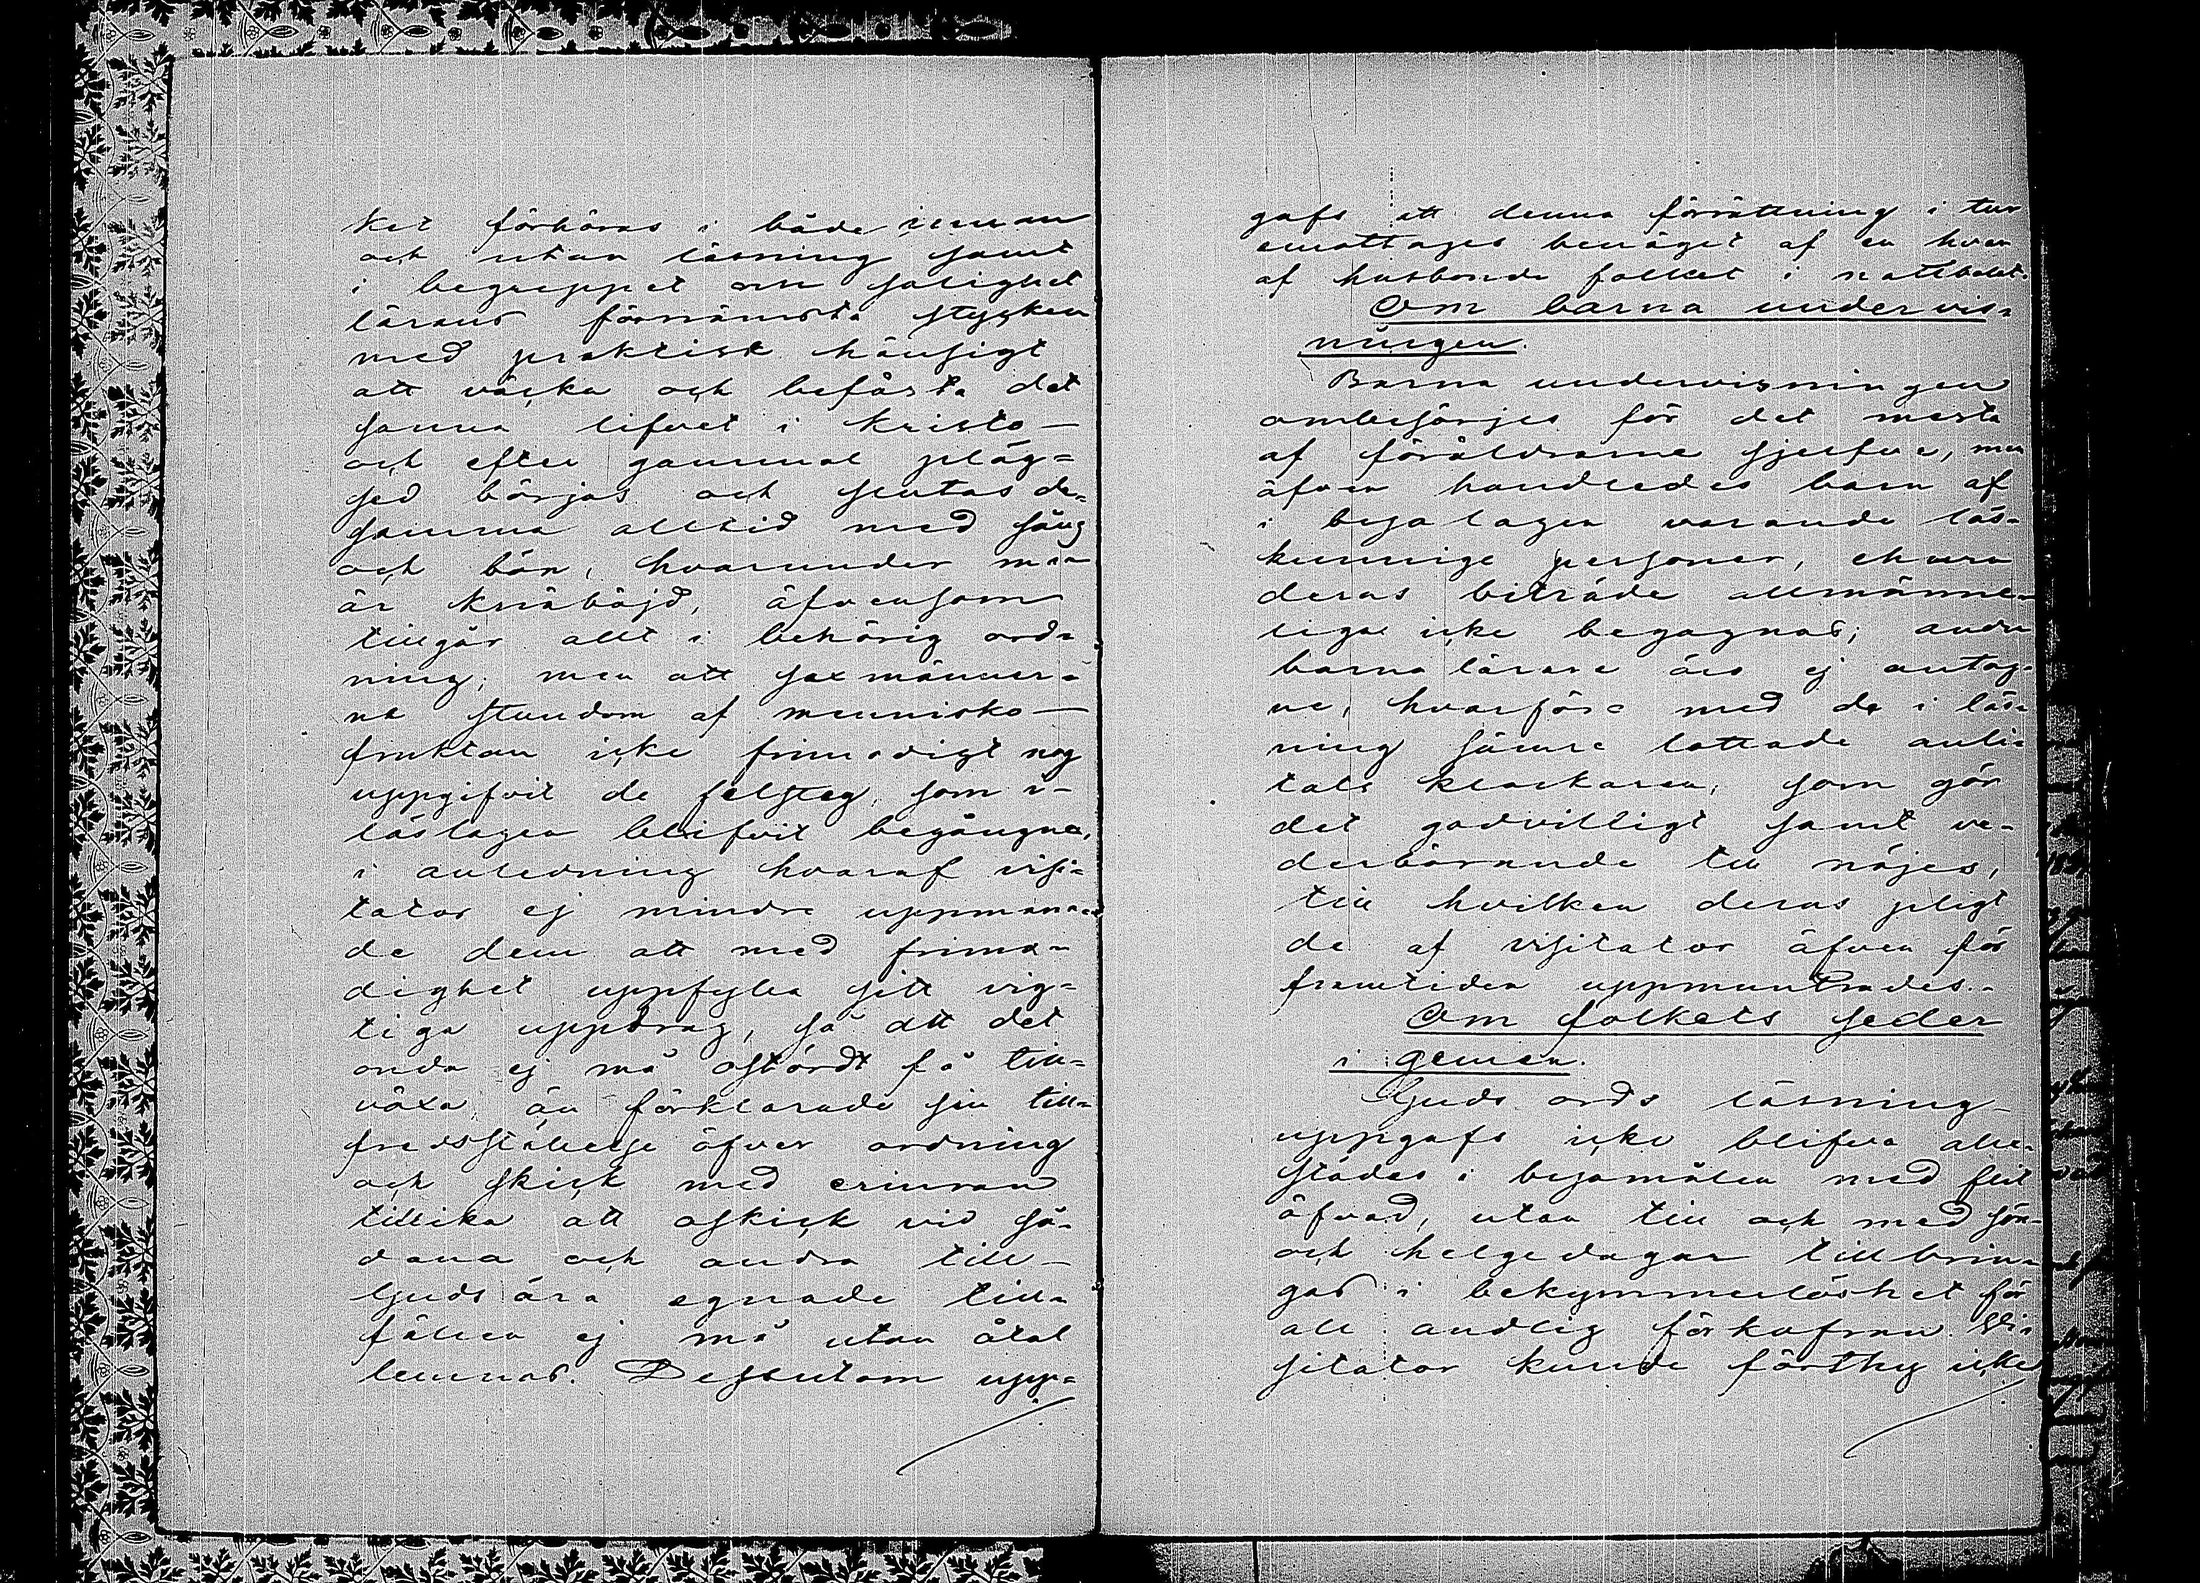 ket förhöras i både innan
och utan läsning samt
i begreppet om salighet
lärans förnämsta stycken
med praktisk hänsigt
att väcka och befästa det
sanna lifvet i Kristo—
och efter gammal pläg=
sed börjas och slutas de=
samma alltid med sång
och bön, hvarunder man
är knäböjd, äfvensom
tillgår allt i behörig ord=
ning; men att sexmänner=
na stundom af mennisko—
fruktan icke frimodigt nog
uppgifvit de felsteg, som i—
läslagen blifvit begångna,
i anledning hvaraf visi=
tator ej mindre uppmana=
de dem att med frimo=
dighet uppfylla sitt vig=
tiga uppdrag, så att det
onda ej må ostördt få till=
växa, än förklarade sin till=
fredsställelse öfver ordning
och skick med erinran
tillika att oskick vid så=
dana och andra till—
Guds ära egnade till=
fällen ej må utan åtal
lemnas. Dessutom upp=
gafs att denna förrättning i tur
emottages benäget af en hvar
af husbonde folket i nattbolet.
Om barna undervis=
ningen.
Barna undervisningen
ombesörjes för det mesta
af föräldrarne sjelfva, men
äfven handledes barn af
i byalagen varande läs=
kunnige personer, ehuru
deras biträde allmänne=
liga icke begagnas; andra
barna lärare äro ej antag=
ne, hvarföre med de i läs=
ning sämre lottade anli=
tats klockaren, som gör
det godvilligt samt ve=
derbörande till nöjes,
till hvilken deras pligt
de af visitator äfven för
framtiden uppmuntrades.
Om folkets seder
i gemen.
Guds ords läsning
uppgafs icke blifva alle=
städes i byamålen med flit
öfvad, utan till och med sön=
och helgedagar tillbrin=
gas i bekymmerlöshet för
all andlig förkofran. Vi=
sitator kunde förthy icke